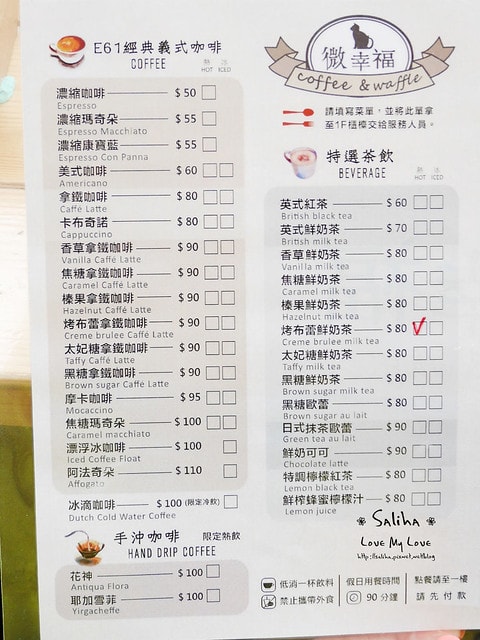 E61經典義式咖啡
COFFEE
熱 冰
HOT ICED
濃縮咖啡 $50
Espresso
濃縮瑪奇朵 $55
Espresso Macchiato
濃縮康寶藍 $55
Espresso Con Panna
美式咖啡 $60
Americano
拿鐵咖啡 $80
Caffé Latte
卡布奇諾 $80
Cappuccino
香草拿鐵咖啡 $90
Vanilla Caffé Latte
焦糖拿鐵咖啡 $90
Caramel Caffé Latte
榛果拿鐵咖啡 $90
Hazelnut Caffé Latte
烤布蕾拿鐵咖啡 $90
Creme brulee Caffé Latte
太妃糖拿鐵咖啡 $90
Taffy Caffé Latte
黑糖拿鐵咖啡 $90
Brown sugar Caffé Latte
摩卡咖啡 $95
Mocaccino
焦糖瑪奇朵 $100
Caramel macchiato
漂浮冰咖啡 $100
Iced Coffee Float
阿法奇朵 $110
Affogato
冰滴咖啡 $100 (限定冷飲)
Dutch Cold Water Coffee
手沖咖啡 限定熱飲
HAND DRIP COFFEE
花神 $100
Antiqua Flora
耶加雪菲 $100
Yirgacheffe
微幸福
coffee & waffle
請填寫菜單，並將此單拿
至1F櫃檯交給服務人員。
特選茶飲
BEVERAGE
熱 冰
HOT ICED
英式紅茶 $60
British black tea
英式鮮奶茶 $70
British milk tea
香草鮮奶茶 $80
Vanilla milk tea
焦糖鮮奶茶 $80
Caramel milk tea
榛果鮮奶茶 $80
Hazelnut milk tea
烤布蕾鮮奶茶 $80
Creme brulee milk tea
太妃糖鮮奶茶 $80
Taffy milk tea
黑糖鮮奶茶 $80
Brown sugar milk tea
黑糖歐蕾 $80
Brown sugar au lait
日式抹茶歐蕾 $90
Green tea au lait
鮮奶可可 $90
Chocolate latte
特調檸檬紅茶 $80
Lemon black tea
鮮榨蜂蜜檸檬汁 $80
Lemon juice
Saliha
Love My Love
http://saliha.pixnet.net/blog
低消一杯飲料
禁止攜帶外食
假日用餐時間
90分鐘
點餐請至一樓
請先付款